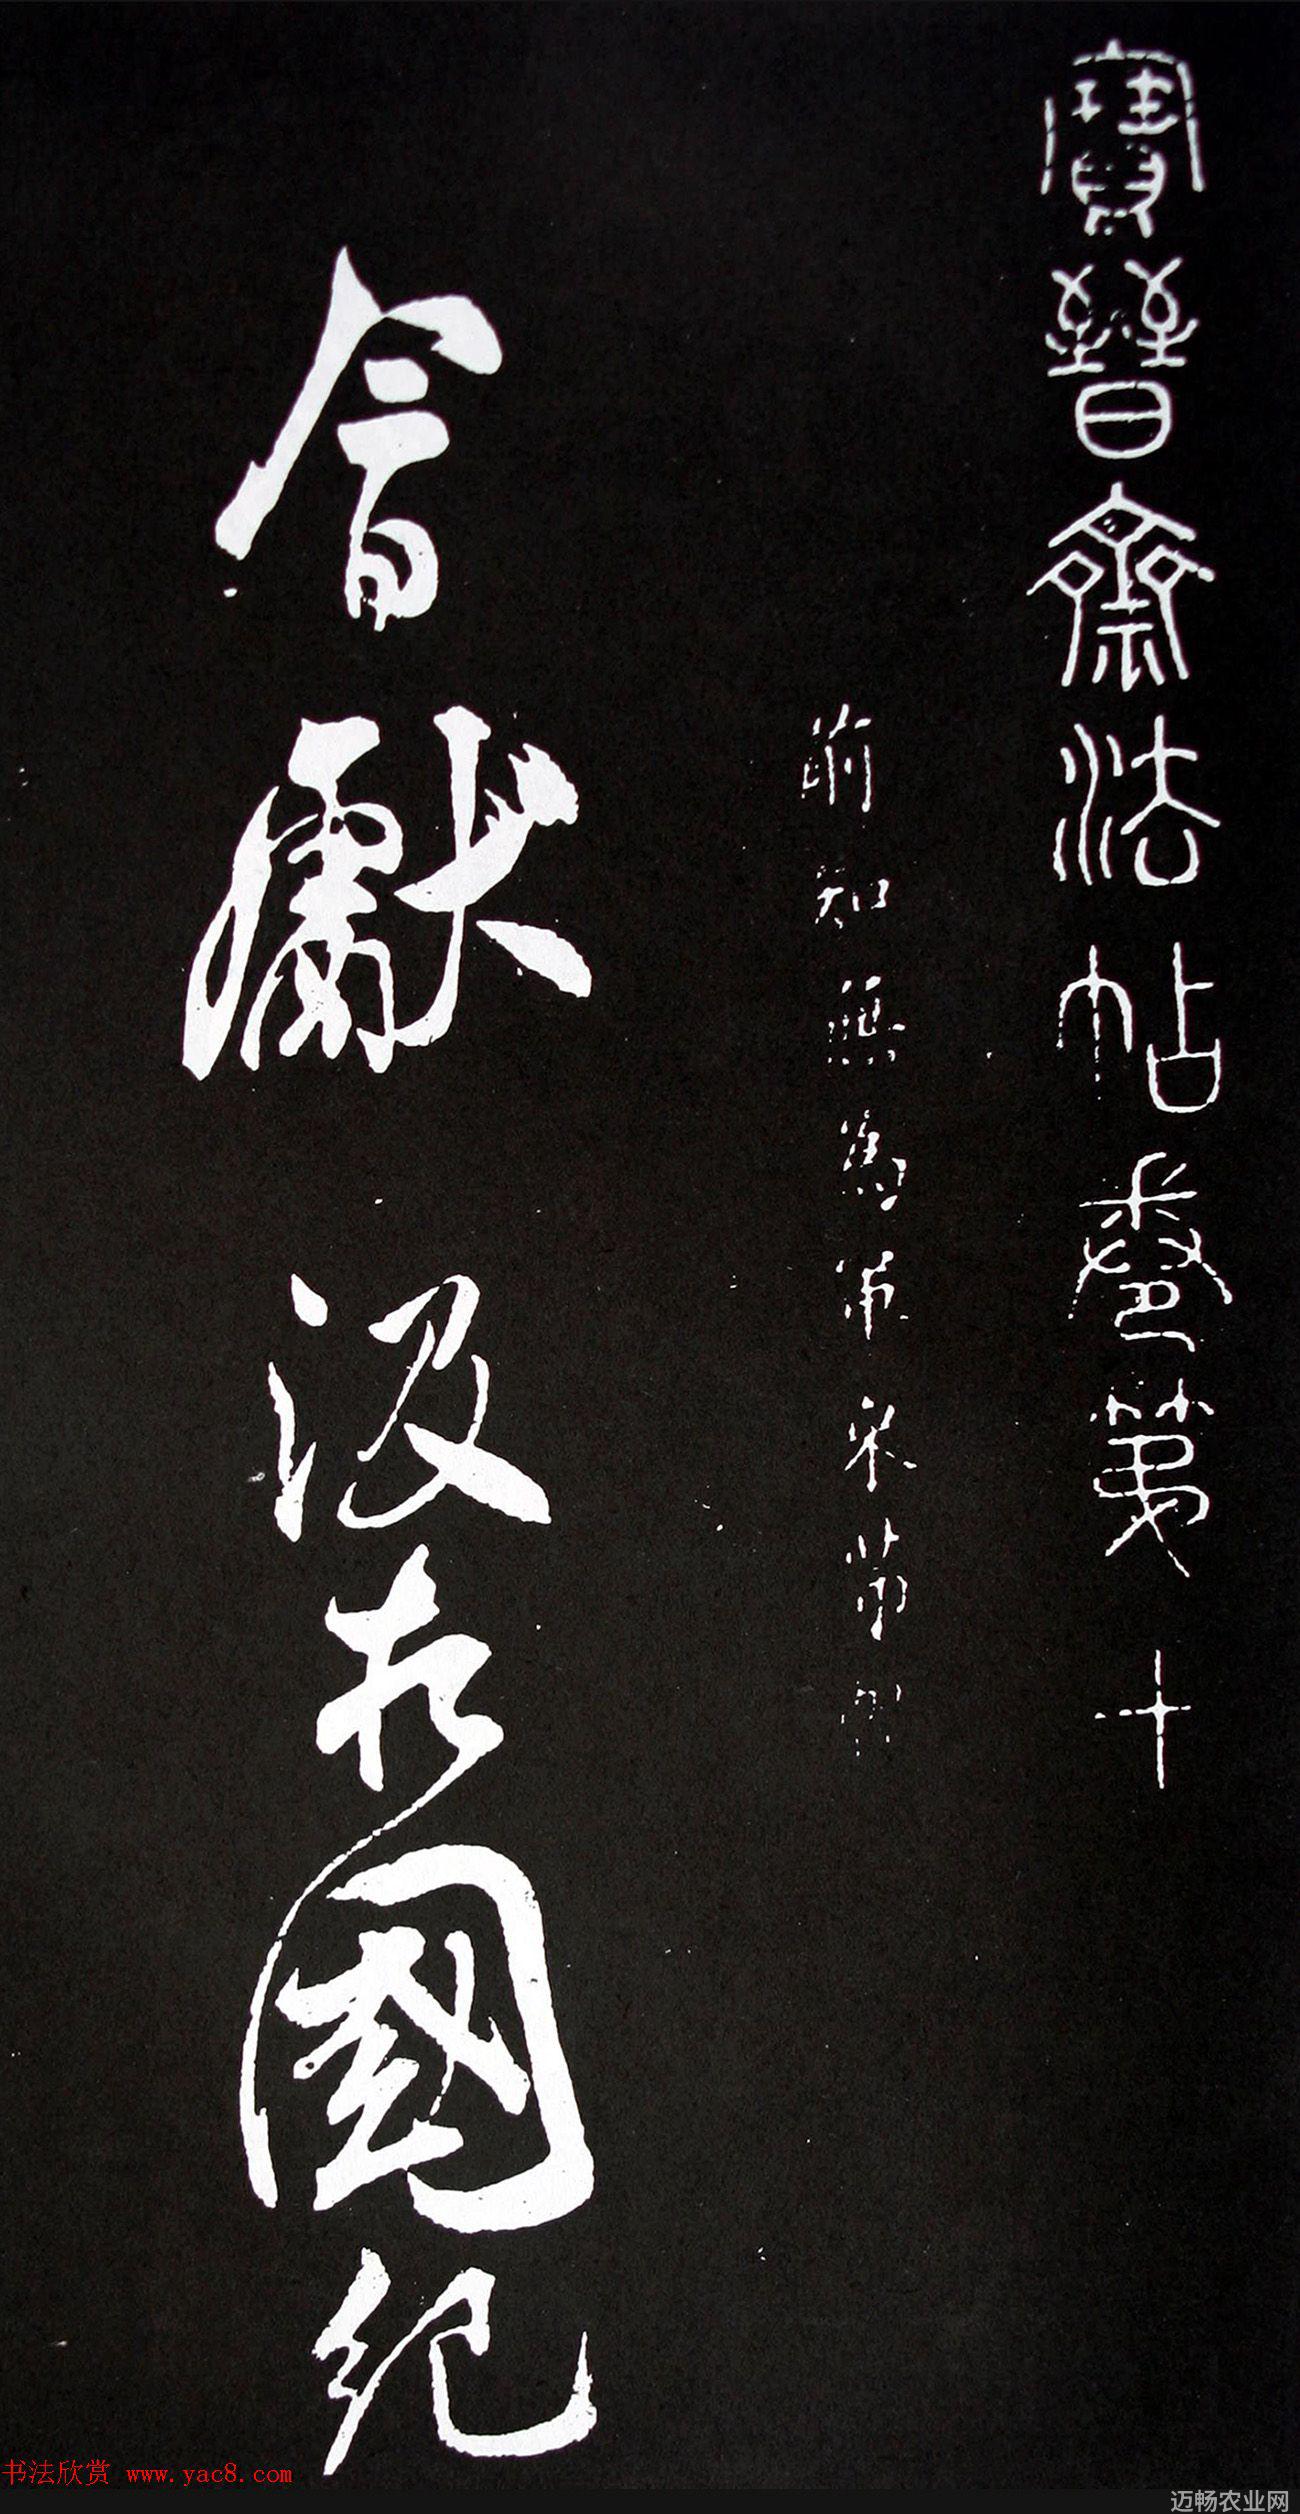 寶晉齋法帖卷第十
前知無爲軍米芾
會獻汲於國紀
书法欣赏 www.yac8.com
迈畅农业网